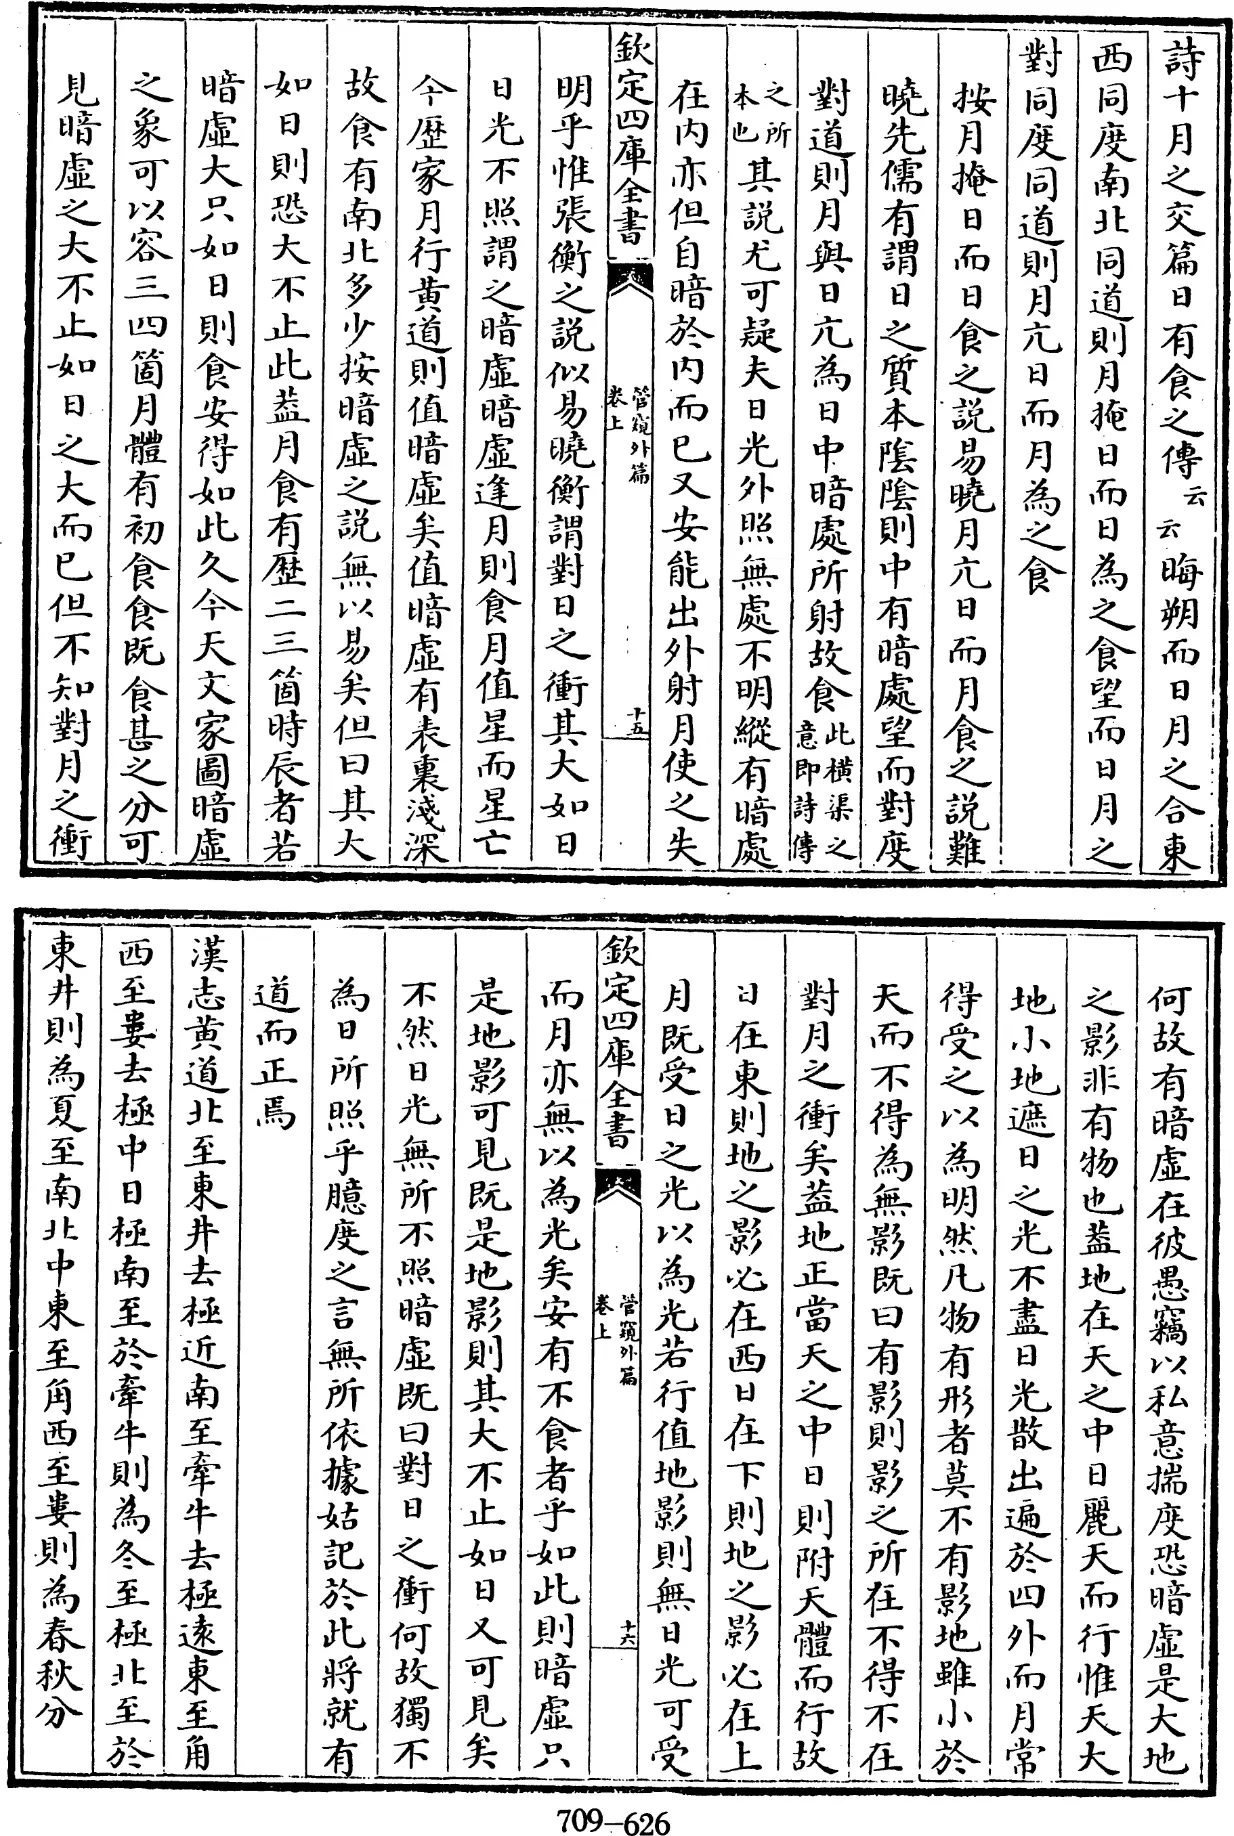 詩十月之交篇日有食之傳云云晦朔而日月之合東
西同度南北同道則月掩日而日為之食望而日月之
對同度同道則月亢日而月為之食
按月掩日而日食之說易曉月亢日而月食之說難
曉先儒有謂日之質本陰陰則中有暗處望而對度
對道則月與日亢為日中暗處所射故食此橫渠之意即詩傳
之所本也其說尤可疑夫日光外照無處不明縱有暗處
在内亦但自暗於内而已又安能出外射月使之失
欽定四庫全書
管窺外篇
卷上
十五
明乎惟張衡之說似易曉衡謂對日之衝其大如日
日光不照謂之暗虛暗虛逢月則食月值星而星亡
今歷家月行黄道則值暗虛矣值暗虛有表裏淺深
故食有南北多少按暗虛之說無以易矣但曰其大
如日則恐大不止此蓋月食有歷二三箇時辰者若
暗虛大只如日則食安得如此久今天文家圖暗虛
之象可以容三四箇月體有初食食既食甚之分可
見暗虛之大不止如日之大而已但不知對月之衝
何故有暗虛在彼愚竊以私意揣度恐暗虛是大地
之影非有物也蓋地在天之中日麗天而行惟天大
地小地遮日之光不盡日光散出遍於四外而月常
得受之以為明然凡物有形者莫不有影地雖小於
天而不得為無影既曰有影則影之所在不得不在
對月之衝矣蓋地正當天之中日則附天體而行故
日在東則地之影必在西日在下則地之影必在上
月既受日之光以為光若行值地影則無日光可受
欽定四庫全書
管窺外篇
卷上
十六
而月亦無以為光矣安有不食者乎如此則暗虛只
是地影可見既是地影則其大不止如日又可見矣
不然日光無所不照暗虛既曰對日之衝何故獨不
為日所照乎臆度之言無所依據姑記於此將就有
道而正焉
漢志黄道北至東井去極近南至牽牛去極遠東至角
西至婁去極中日極南至於牽牛則為冬至極北至於
東井則為夏至南北中東至角西至婁則為春秋分
709-626